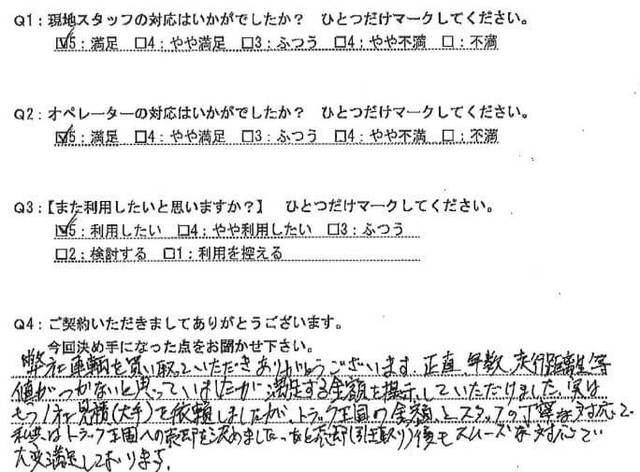 Q1：現地スタッフの対応はいかがでしたか？　ひとつだけマークしてください。
☑5：満足　□4：やや満足　□3：ふつう　□4：やや不満　□：不満
Q2：オペレーターの対応はいかがでしたか？　ひとつだけマークしてください。
☑5：満足　□4：やや満足　□3：ふつう　□4：やや不満　□：不満
Q3：【また利用したいと思いますか？】　ひとつだけマークしてください。
☑5：利用したい　□4：やや利用したい　□3：ふつう
□2：検討する　□1：利用を控える
Q4：ご契約いただきましてありがとうございます。
今回決め手になった点をお聞かせ下さい。
弊社車輌を買い取っていただきありがとうございます。正直 年数、走行距離等
値がつかないと思っていましたが満足する金額を提示していただけました。実は
もう1社見積(大手)を依頼しましたが、トラック王国の金額とスタッフの丁寧な対応で
私共はトラック王国への売却を決めました。売却(引き取り)後もスムーズな対応で
大変満足しております。